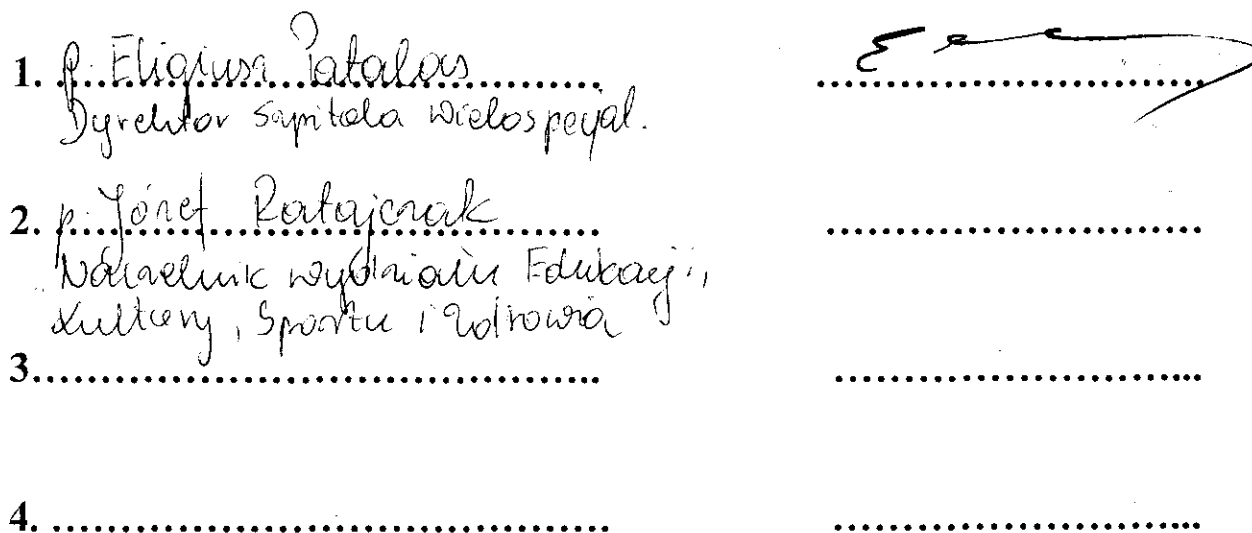 1. p. Eligiusz Patalas
Dyrektor Szpitala Wielospecjal.
2. p. Józef Ratajczak
Naczelnik wydziału Edukacji,
Kultury, Sportu i Zdrowia
3.
4.